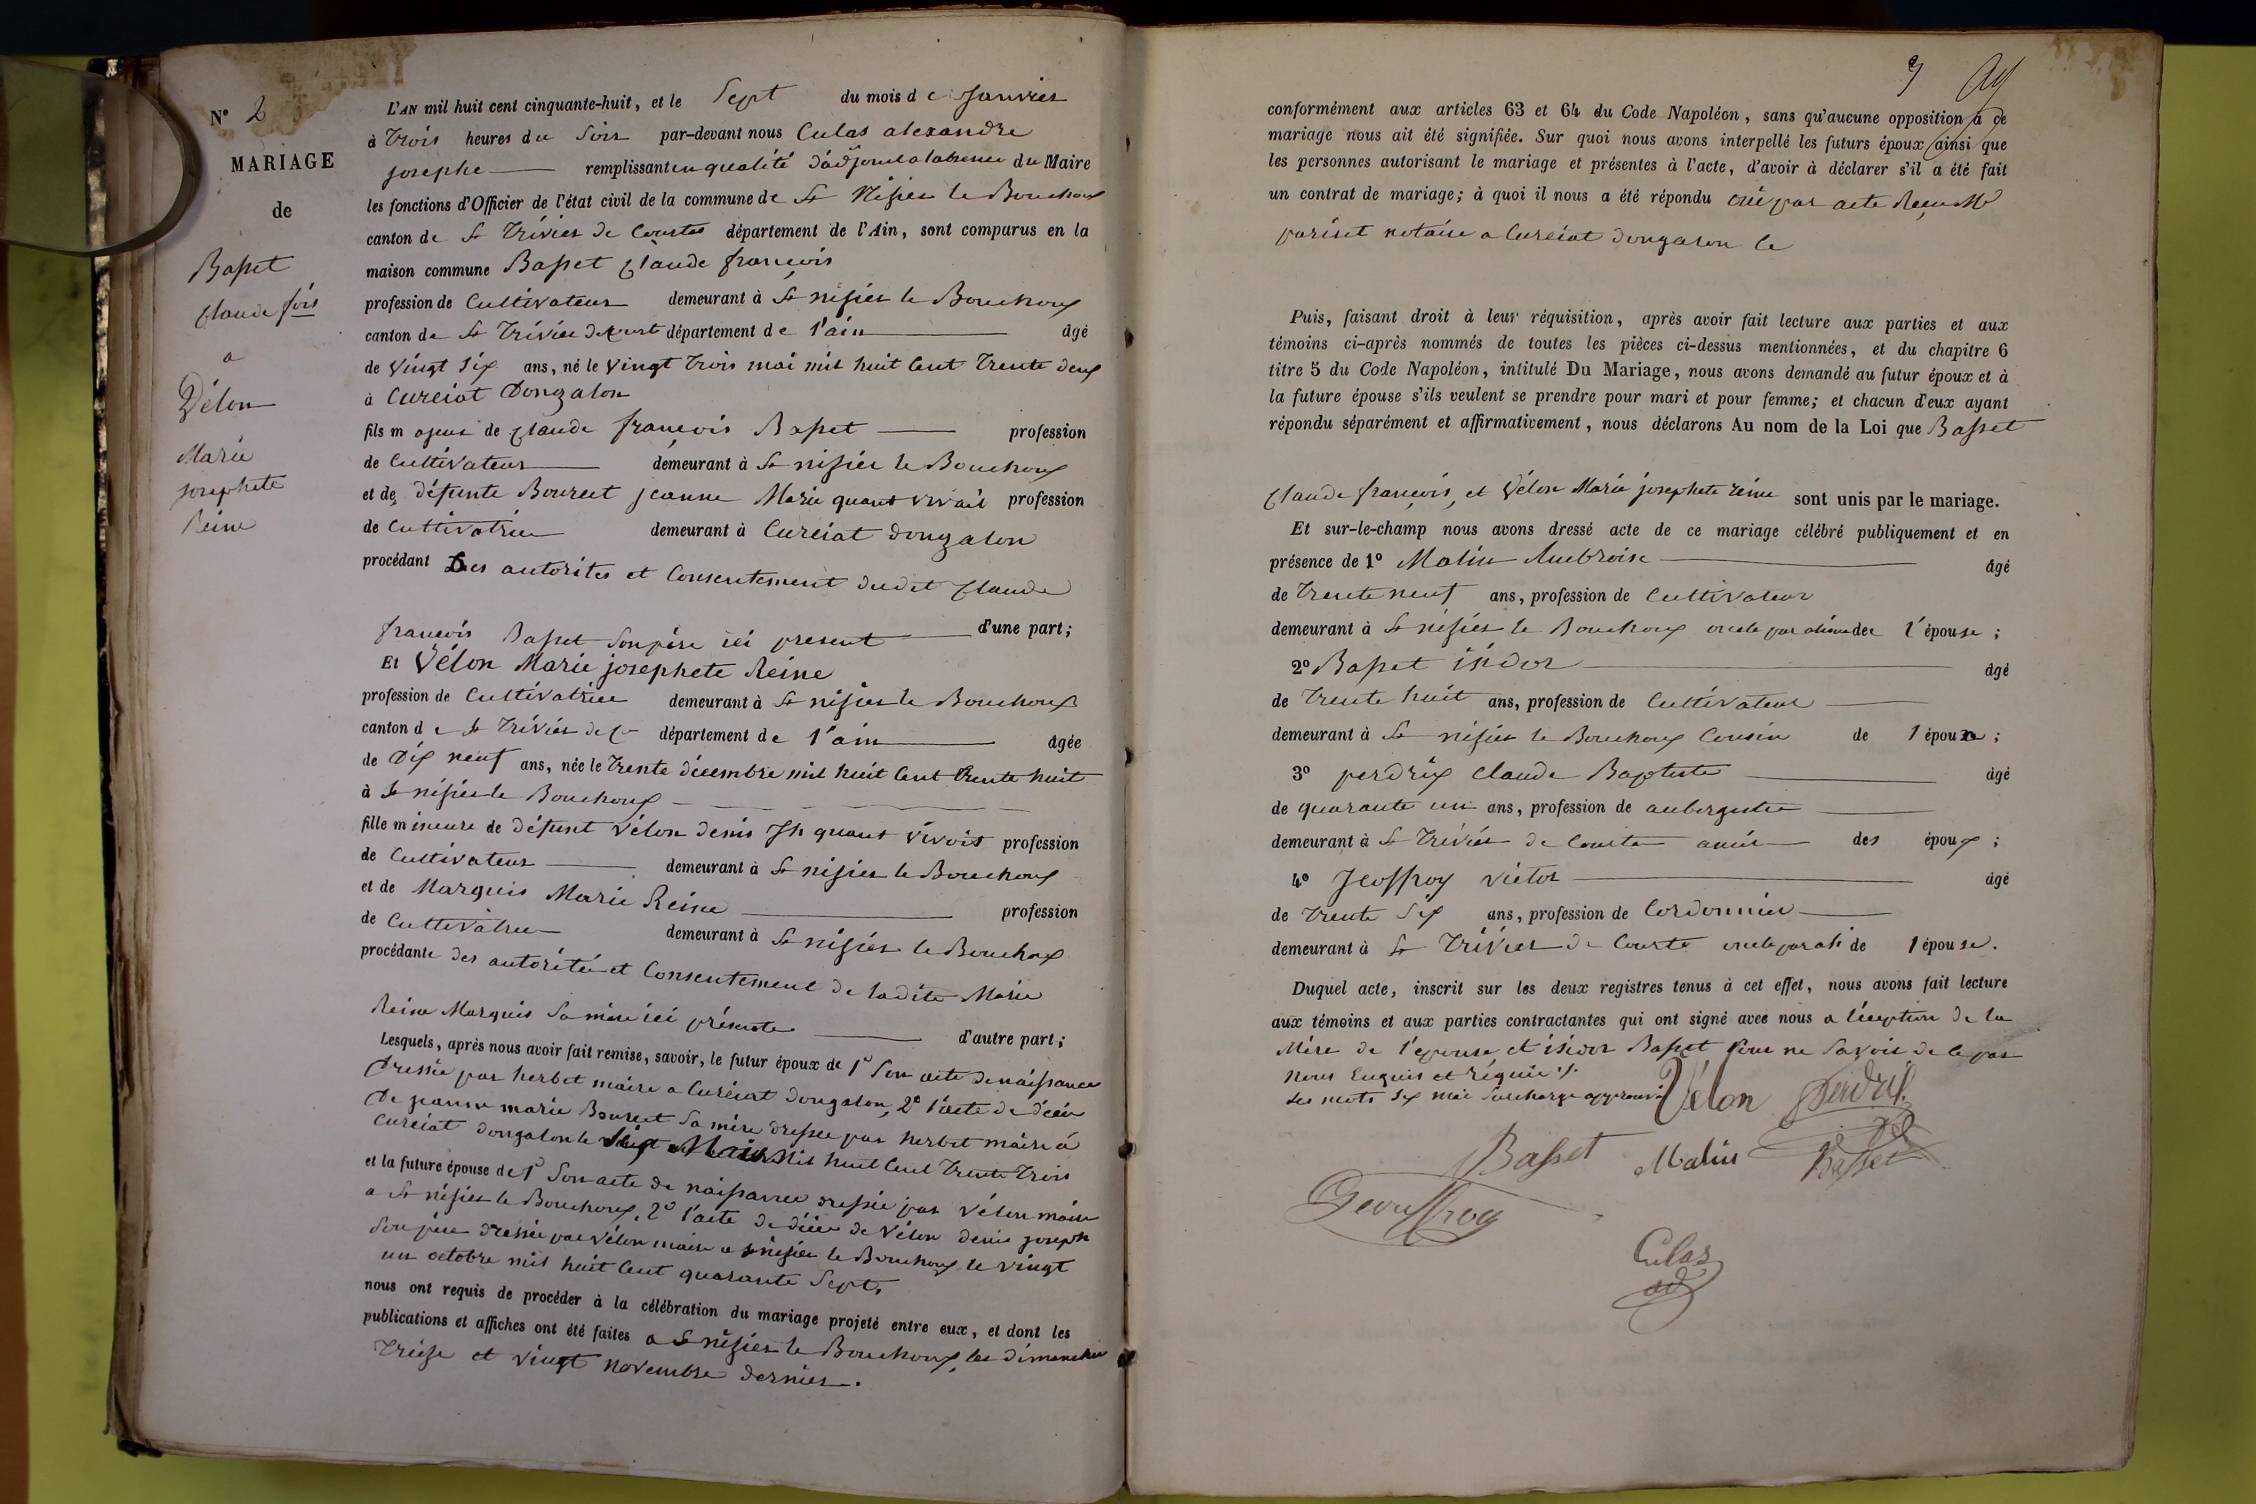 N° 2
MARIAGE
de
Basset
Claude fois
a
Vélon
Marie
josephete
Reine
L'AN mil huit cent cinquante-huit, et le Sept du mois de Janvier
à trois heures du Soir par-devant nous Culas alexandre
josephe remplissant en qualité d'adjoint a labsence du Maire
les fonctions d'Officier de l'état civil de la commune de St Nisier le Bouchoux
canton de St Trivier de Courtes département de l'Ain, sont comparus en la
maison commune Basset Claude françois
profession de Cultivateur demeurant à St nisier le Bouchoux
canton de St Trivier de Court département de l'ain âgé
de vingt six ans, né le vingt trois mai mil huit Cent trente deux
à Curciat Dongalon
fils majeur de Claude françois Basset profession
de Cultivateur demeurant à St nisier le Bouchoux
et de défunte Bourcet jeanne Marie quant vivait profession
de Cultivatrice demeurant à Curciat dongalon
procédant Des autorites et Consentement dudit Claude
françois Basset Son père ici present d'une part;
Et Vélon Marie josephete Reine
profession de Cultivatrice demeurant à St nisier le Bouchoux
canton de St Trivier de C département de l'ain âgée
de Dix neuf ans, née le trente décembre mil huit Cent trente huit
à St nisier le Bouchoux
fille mineure de défunt Vélon denis Jh quant vivoit profession
de Cultivateur demeurant à St nisier le Bouchoux
et de Marquis Marie Reine profession
de Cultivatrice demeurant à St nisier le Bouchoux
procédante des autorités et Consentement de ladite Marie
Reine Marquis Sa mère ici présente d'autre part;
Lesquels, après nous avoir fait remise, savoir, le futur époux de 1° Son acte de naissance
dressée par herbet maire a Curciat dongalon, 2° l'acte de décée
de jeanne marie Bourcet Sa mère dressée par herbet maire à
Curciat dongalon le Six Mai mil huit Cent trente trois
et la future épouse de 1° Son acte de naissance dressée par Vélon maire
a St nisier le Bouchoux, 2° l'acte de décée de Vélon denis joseph
Son père dressée par Vélon maire a St nisier le Bouchoux le vingt
un octobre mil huit Cent quarante Sept,
nous ont requis de procéder à la célébration du mariage projeté entre eux, et dont les
publications et affiches ont été faites a St nisier le Bouchoux, les dimanches
treize et vingt novembre dernier.
conformément aux articles 63 et 64 du Code Napoléon, sans qu'aucune opposition à ce
mariage nous ait été signifiée. Sur quoi nous avons interpellé les futurs époux ainsi que
les personnes autorisant le mariage et présentes à l'acte, d'avoir à déclarer s'il a été fait
un contrat de mariage; à quoi il nous a été répondu oui par acte Reçu Me
pariset notaire a Curciat dongalon le
Puis, faisant droit à leur réquisition, après avoir fait lecture aux parties et aux
témoins ci-après nommés de toutes les pièces ci-dessus mentionnées, et du chapitre 6
titre 5 du Code Napoléon, intitulé Du Mariage, nous avons demandé au futur époux et à
la future épouse s'ils veulent se prendre pour mari et pour femme; et chacun d'eux ayant
répondu séparément et affirmativement, nous déclarons Au nom de la Loi que Basset
Claude françois, et Vélon Marie josephete reine sont unis par le mariage.
Et sur-le-champ nous avons dressé acte de ce mariage célébré publiquement et en
présence de 1° Malin Ambroise âgé
de trente neuf ans, profession de Cultivateur
demeurant à St nisier le Bouchoux oncle par aliance de l'épouse;
2° Basset isidor âgé
de trente huit ans, profession de Cultivateur
demeurant à St nisier le Bouchoux Cousin de l époux;
3° perdrix Claude Baptiste âgé
de quarante un ans, profession de aubergiste
demeurant à St Trivier de Courte amis des époux;
4° Jeoffroy victor âgé
de trente six ans, profession de Cordonnier
demeurant à St Trivier de Courte oncle par ali de l épouse.
Duquel acte, inscrit sur les deux registres tenus à cet effet, nous avons fait lecture
aux témoins et aux parties contractantes qui ont signé avec nous a léxeption de la
Mère de l'epouse, et isidor Basset Pour ne Savoir de le par
nous Enquis et réquis ./.
Les mots Six mai Surcharge approuvé Vélon Perdrix
Basset Malin Basset
Geouffroy
Culas
ad